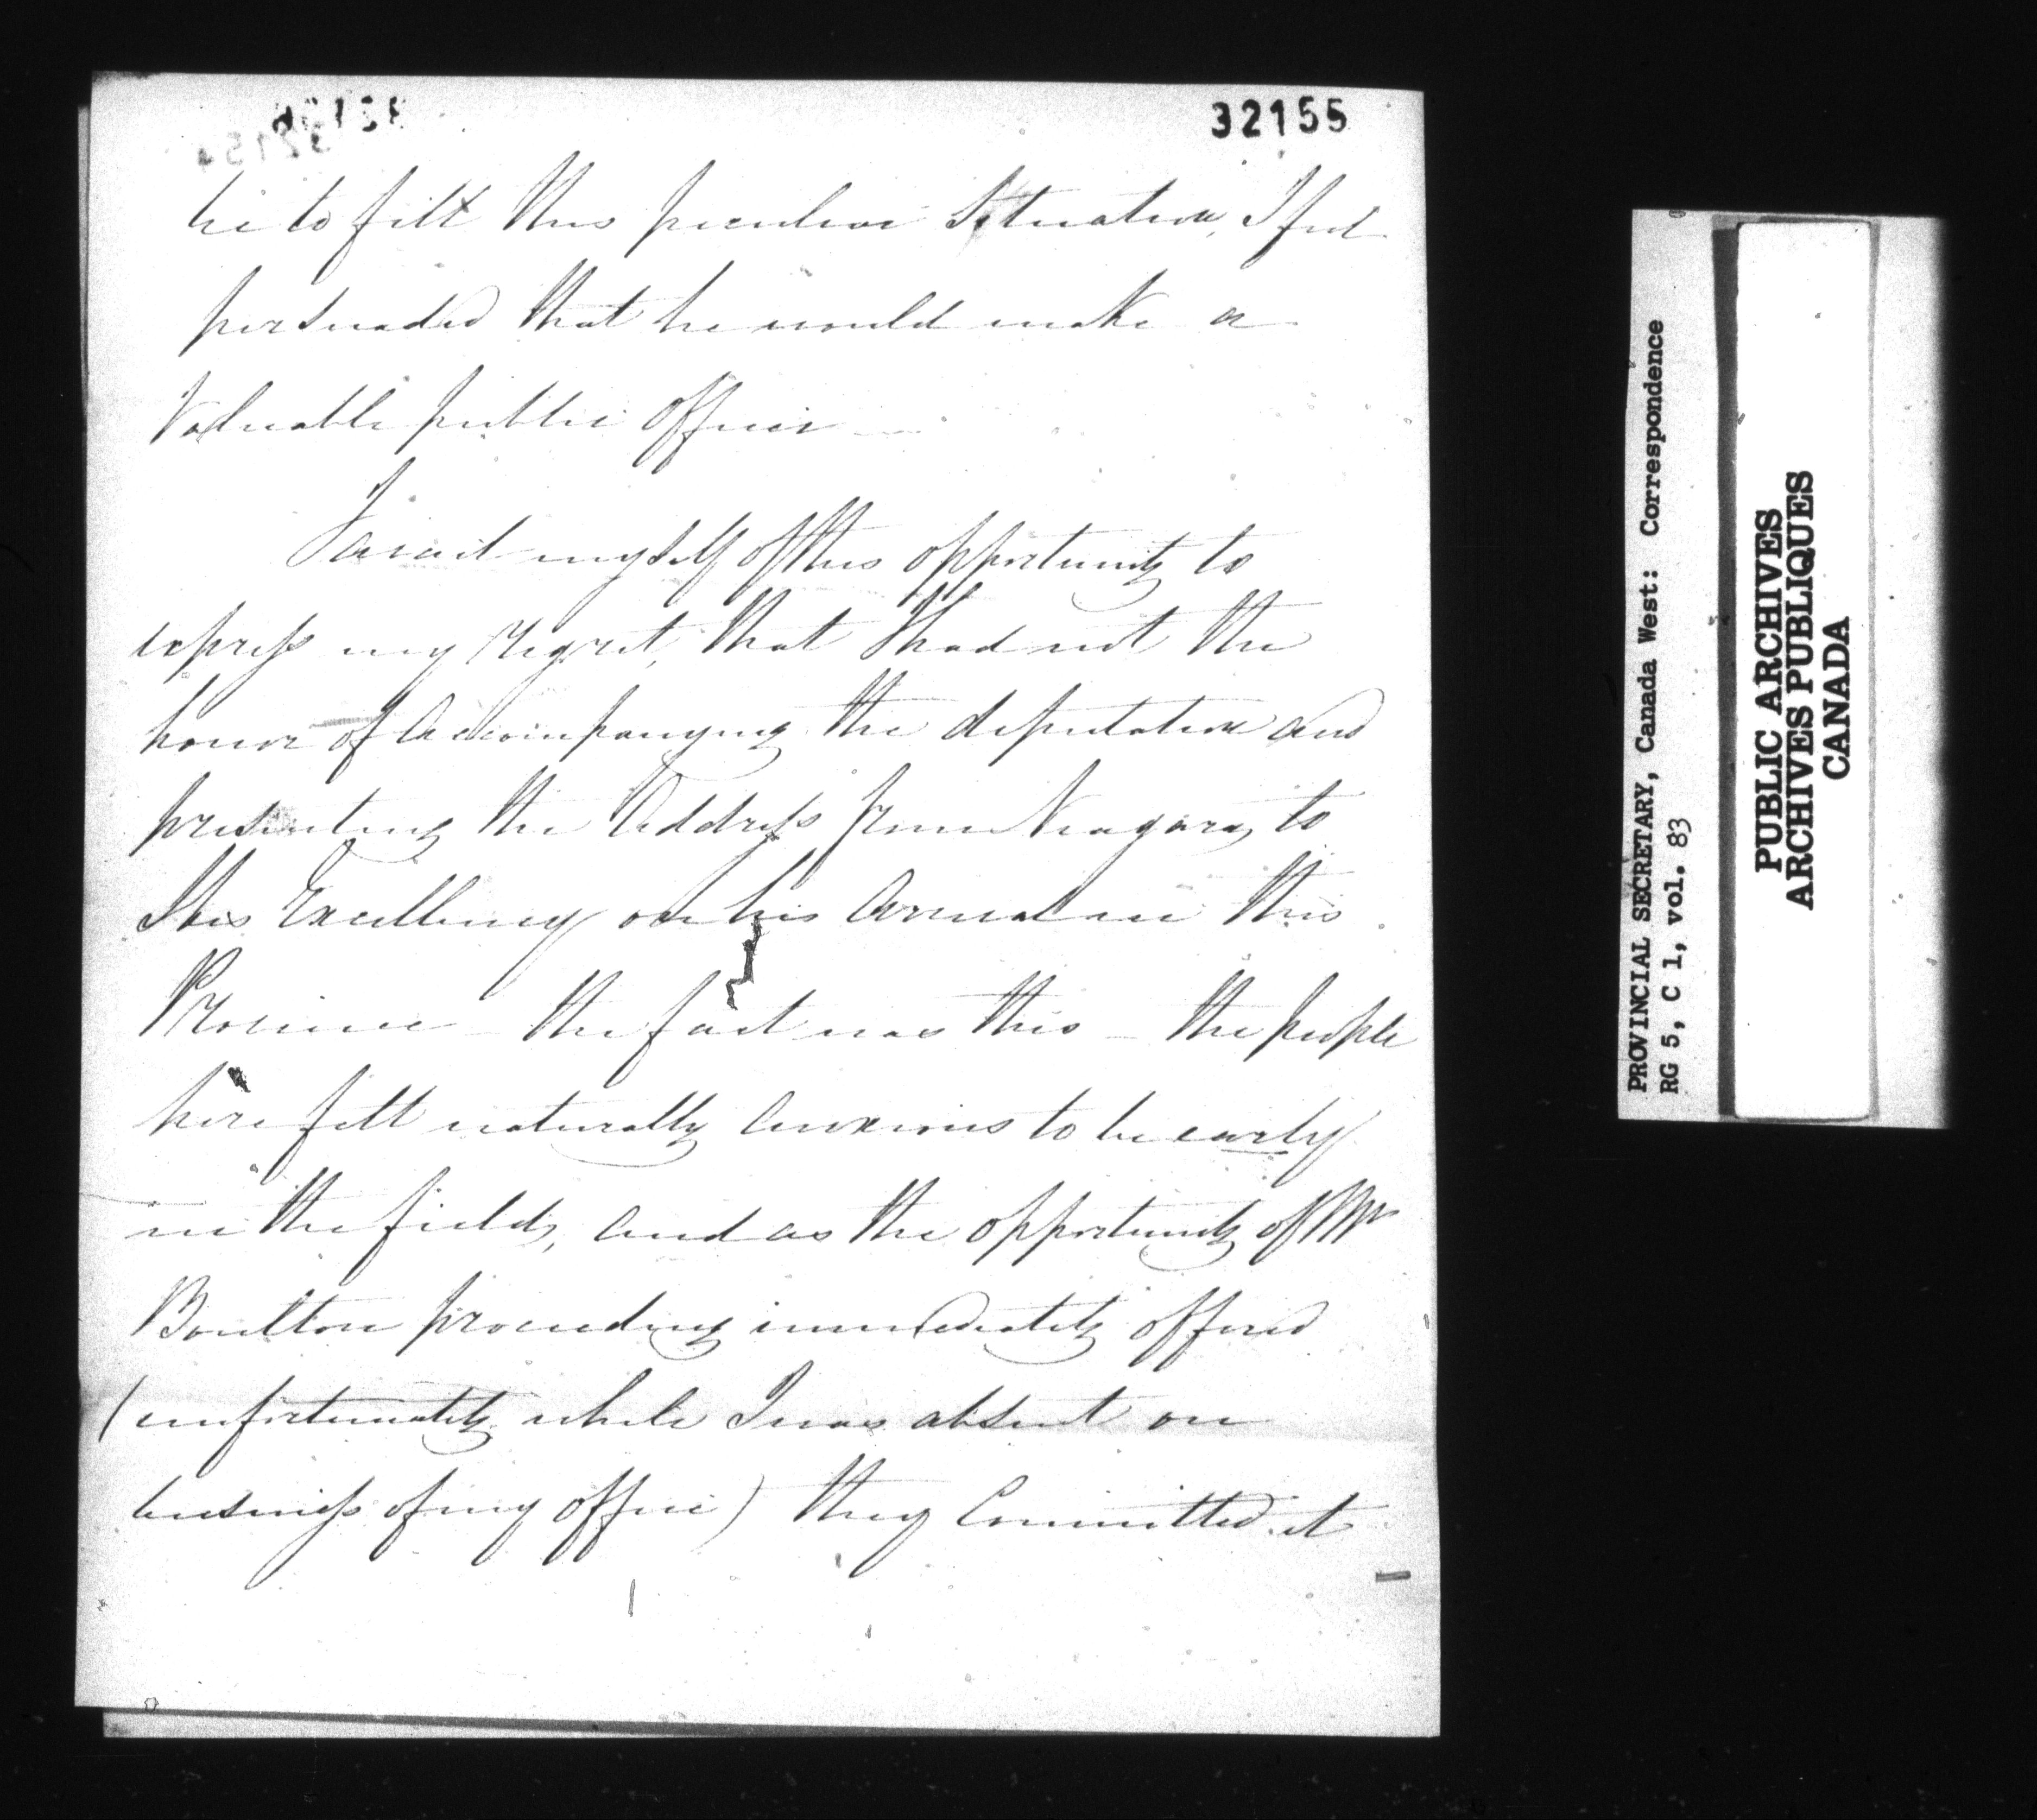 32155
be to fill this peculiar Situation, I feel
persuaded that he would make a
Valuable public officer
I avail myself of this opportunity to
express my regret, that I had not the
honor of accompanying the deputation and
presenting the Address from Niagara, to
His Excellency on his arrival in this
Province – the fact was this – the people
here felt naturally anxious to be early
in the field, and as the opportunity of Mr
Boulton proceeding immediately offered
(unfortunately while I was absent on
business of my office) they Committed it
PROVINCIAL SECRETARY, Canada West: Correspondence
RG 5, C 1, vol. 83
PUBLIC ARCHIVES
ARCHIVES PUBLIQUES
CANADA